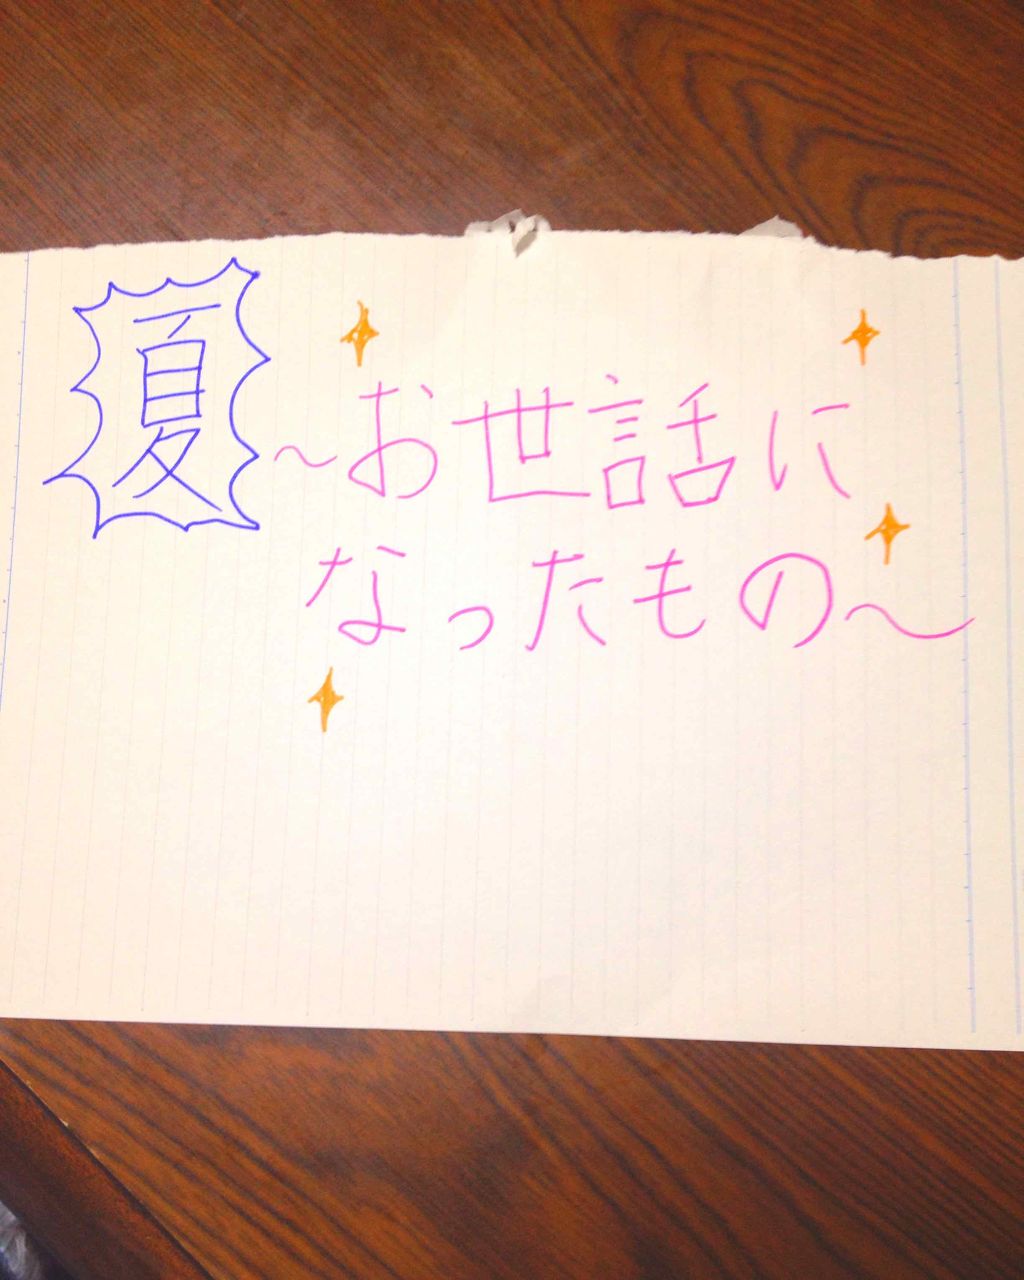 夏
〜お世話に
なったもの〜